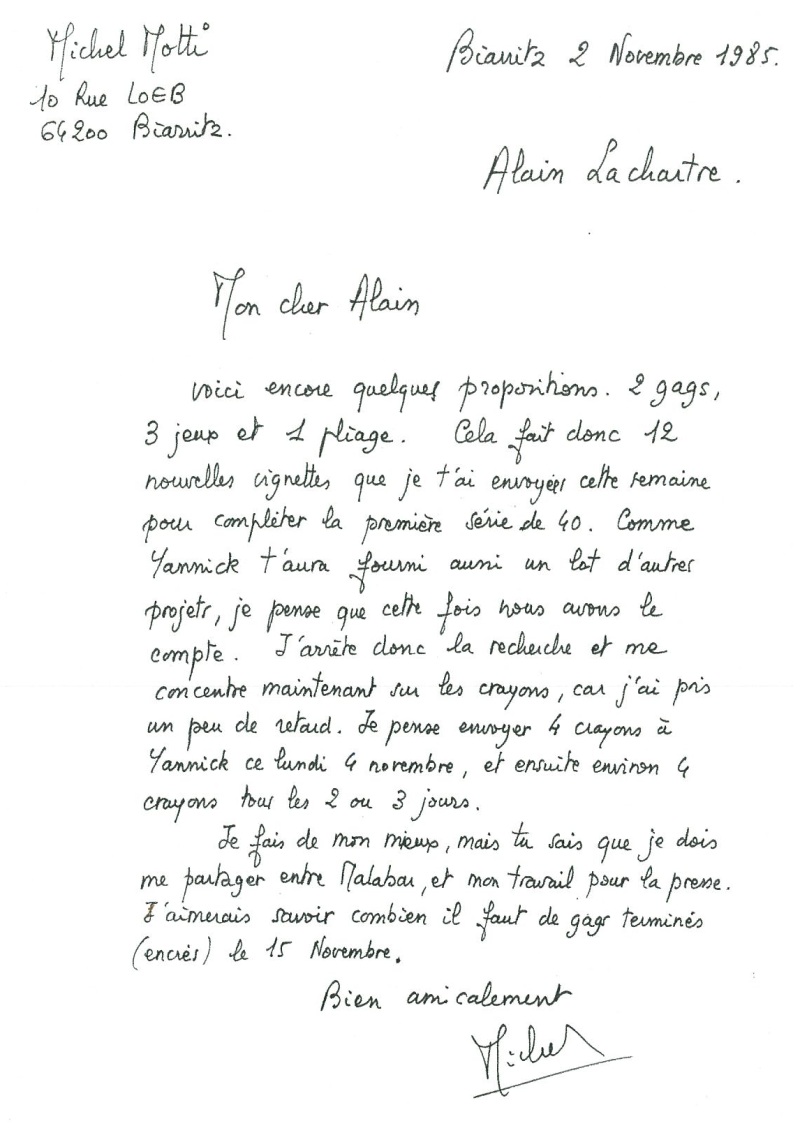 Michel Motti
Biarritz 2 Novembre 1985.
10 Rue LOEB
64200 Biarritz.
Alain Lachartre.
Mon cher Alain
voici encore quelques propositions. 2 gags,
3 jeux et 1 pliage. Cela fait donc 12
nouvelles vignettes que je t'ai envoyées cette semaine
pour compléter la première série de 40. Comme
Yannick t'aura fourni aussi un lot d'autres
projets, je pense que cette fois nous avons le
compte. J'arrête donc la recherche et me
concentre maintenant sur les crayons, car j'ai pris
un peu de retard. Je pense envoyer 4 crayons à
Yannick ce lundi 4 novembre, et ensuite environ 4
crayons tous les 2 ou 3 jours.
Je fais de mon mieux, mais tu sais que je dois
me partager entre Malabar, et mon travail pour la presse.
J'aimerais savoir combien il faut de gags terminés
(encrés) le 15 Novembre.
Bien amicalement
Michel